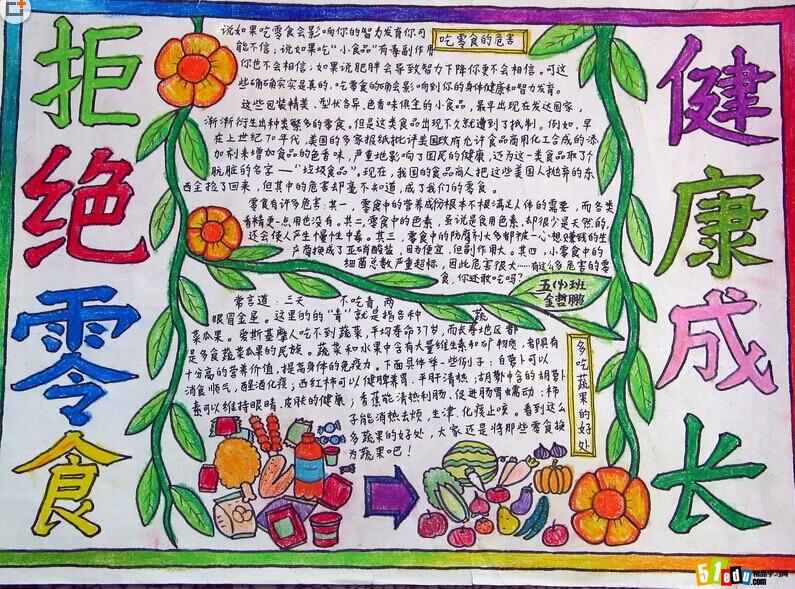 拒绝零食
健康成长
吃零食的危害
说如果吃零食会影响你的智力发育你可
能不信；说如果吃“小食品”有毒副作用
你也不会相信；如果说肥胖会导致智力下降你更不会相信。可这
些确确实实是真的，吃零食的确会影响到你的身体健康和智力发育。
这些包装精美、型状各异、色香味俱全的小食品，最早出现在发达国家，
渐渐衍生出种类繁多的零食。但是这类食品出现不久就遭到了抵制。例如，早
在上世纪70年代，美国的多家报纸批评美国政府允许食品商用化工合成的添
加剂来增加食品的色香味，严重地影响了国民的健康，还为这一类食品取了个
肮脏的名字——“垃圾食品”。现在，我国的食品商人把这些美国人抛弃的东
西全捡了回来，但其中的危害却毫不知道，成了我们的零食。
零食有许多危害：其一，零食中的营养成份根本不根满足人体的需要，而各类
香精更一点用也没有。其二，零食中的色素，虽说是食用色素，却很少是天然的，
还会使人产生慢性中毒。其三，零食中的防腐剂大多都被一心想赚钱的生
产商换成了亚硝酸盐，因为便宜，但副作用大。其四，小零食中的
细菌总数严重超标，因此危害很大……有这么多危害的零
食，你还敢吃吗？
五(4)班
金哲鹏
常言道：三天 不吃青，两
眼冒金星。这里的的“青”就是指各种 蔬
菜瓜果。爱斯基摩人吃不到蔬菜，平均寿命37岁，而长寿地区都
是多食蔬菜瓜果的民族。蔬菜和水果中含有大量维生素和矿物质，都具有
十分高的营养价值，提高身体的免疫力。下面具体举一些例子：白萝卜可以
消食顺气，醒酒化痰；西红柿可以健脾养胃、平肝清热；胡萝卜中含的胡萝卜
素可以维持眼睛、皮肤的健康；香蕉能清热利肠，促进肠胃蠕动；柿
子能消热去烦，生津，化痰止咳。看到这么
多蔬果的好处，大家还是将那些零食换
为蔬果吧！
多吃蔬果的好处
51edu.com